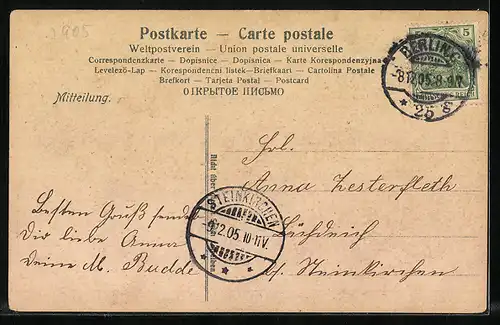 1905
Postkarte – Carte postale
Weltpostverein – Union postale universelle
Correspondenzkarte – Dopisnice – Dopisnica – Karte Korespondenzyjna
Levelező-Lap – Korespondencni listek – Briefkaart – Cartolina Postale
Brefkort – Tarjeta Postal – Postcard
ОТКРЫТОЕ ПИСЬМО
Mitteilung.
5
BERLIN
8.12.05. 8-9N.
* 25 e
Nicht über
STEINKIRCHEN
9.12.05.10-11V.
* * *
Frl.
Anna Zesterfleth
Lühdeich
b/ Steinkirchen
Besten Gruß sendet
Dir liebe Anna
Deine M. Budde